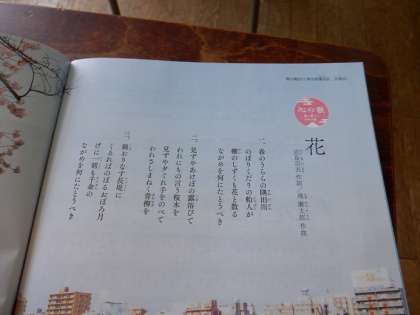 心の歌
花
武島羽衣 作詞／滝 廉太郎 作曲
一、春のうららの隅田川
のぼりくだりの船人が
櫂のしずくも花と散る
ながめを何にたとうべき
二、見ずやあけぼの露浴びて
われにもの言う桜木を
見ずや夕ぐれ手をのべて
われさしまねく青柳を
三、錦おりなす長堤に
くるればのぼるおぼろ月
げに一刻も千金の
ながめを何にたとうべき